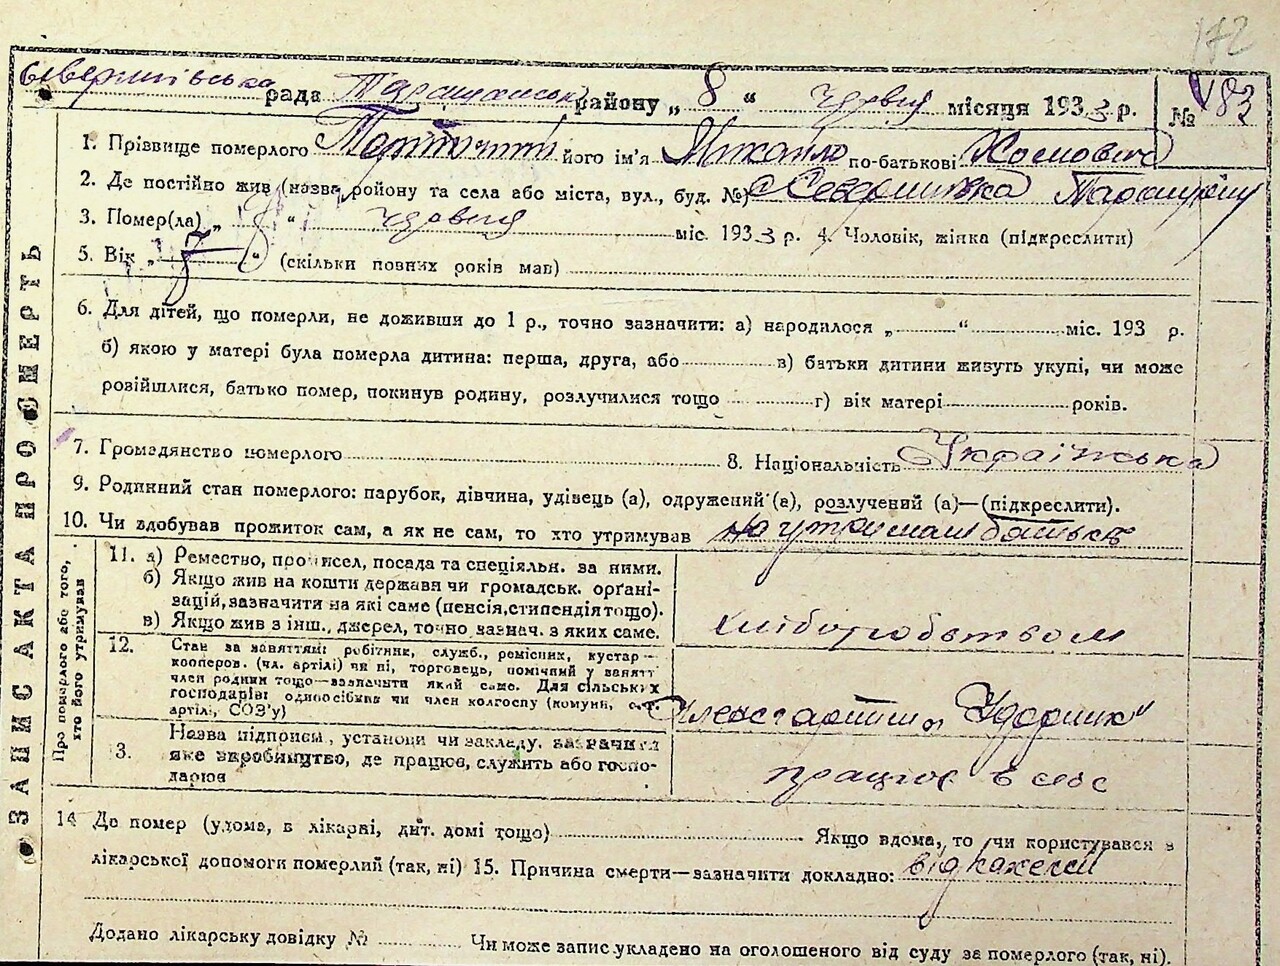 172
рада районy „ 8 “ червня місяця 1933 р. № 183
ЗАПИС АКТА ПРО СМЕРТЬ
1. Прізвище померлого його ім'я Михайло по-батькові Хомович
2. Де постійно жив (назва району та села або міста, вул., буд. №) с Северинівка
3. Помер(ла) „ 8 “ червня міс. 1933 р. 4. Чоловік, жінка (підкреслити)
5. Вік „ “ (скільки повних років мав)
6. Для дітей, що померли, не доживши до 1 р., точно зазначити: а) народилося „ “ міс. 193 р.
б) якою у матері була померла дитина: перша, друга, або в) батьки дитини живуть укупі, чи може
розійшлися, батько помер, покинув родину, розлучилися тощо г) вік матері років.
7. Громадянство померлого 8. Національність Українська
9. Родинний стан померлого: парубок, дівчина, удівець (а), одружений (а), розлучений (а)—(підкреслити).
10. Чи здобував прожиток сам, а як не сам, то хто утримував на утриманні батьків
Про померлого або того, хто його утримував
11. а) Ремество, промисел, посада та спеціяльн. за ними.
б) Якщо жив на кошти держави чи громадськ. орґані-
зацій, зазначити на які саме (пенсія, стипендія тощо).
в) Якщо жив з інш., джерел, точно зазнач. з яких саме.
хліборобством
12. Стан за заняттям: робітник, служб., ремісник, кустар—
кооперов. (чл. артілі) чи ні, торговець, помічний у занятті
член родини тощо—зазначити який саме. Для сільських
господарів: одноосібник чи член колгоспу (комуни, с.-г.
артілі, СОЗ'у)
Член с/г артіли „Ударник“
13. Назва підприєм., установи чи закладу, зазначити
яке виробництво, де працює, служить або госпо-
дарює
працює в селі
14 Де помер (удома, в лікарні, дит. домі тощо) Якщо вдома, то чи користувався з
лікарської допомоги померлий (так, ні) 15. Причина смерти—зазначити докладно: від кахексії
Додано лікарську довідку № Чи може запис укладено на оголошеного від суду за померлого (так, ні).